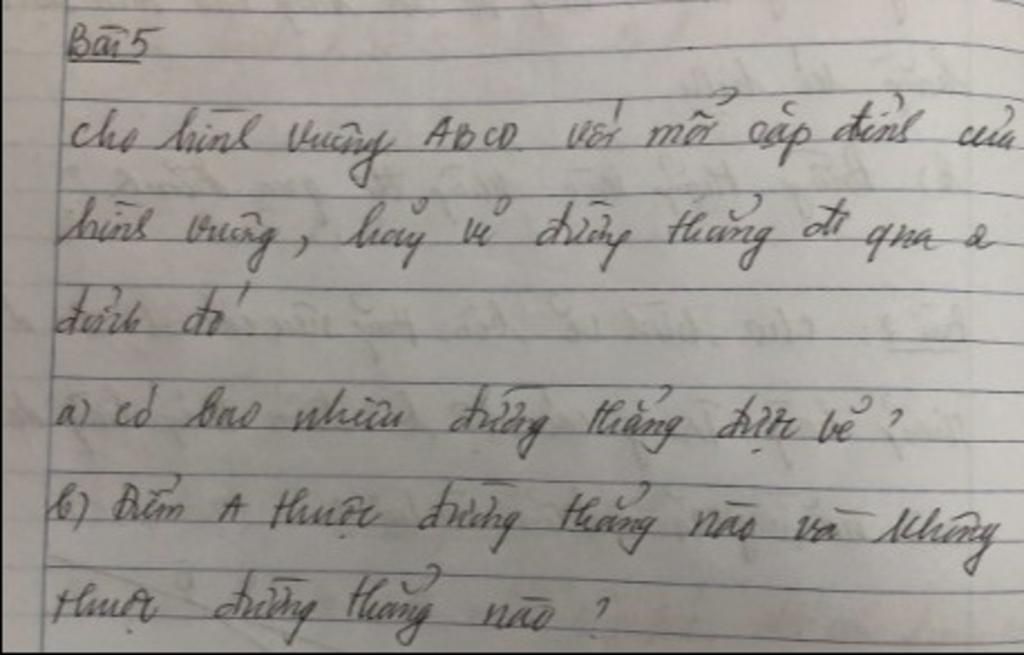 Bài 5
cho hình vuông ABCD. với mỗi cặp đỉnh của
hình vuông, hãy vẽ đường thẳng đi qua 2
đỉnh đó
a) có bao nhiêu đường thẳng được vẽ?
b) Điểm A thuộc đường thẳng nào và không
thuộc đường thẳng nào?